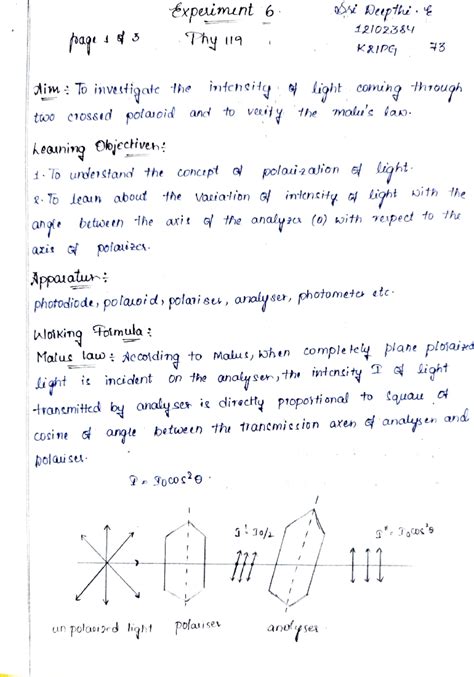 Experiment 6.
Sri Deepthi. E
page 1 of 3
Phy 119
12102384
K21PG 73
Aim : To investigate the intensity of light coming through
two crossed polaroid and to verify the malu's law.
Learning Objectives :
1. To understand the concept of polarization of light.
2. To learn about the variation of intensity of light with the
angle between the axis of the analyzer (θ) with respect to the
axis of polarizer.
Apparatus :
photodiode, polaroid, polariser, analyser, photometer etc.
Working Formula :
Malus law : According to Malus, when completely plane plolaraized
light is incident on the analyser, the intensity I of light
transmitted by analyser is directly proportional to square of
cosine of angle between the transmission axes of analyser and
polariser.
I = I0cos²θ
I' = I0/2
I" = I0cos²θ
unpolarized light
polariser
analyser